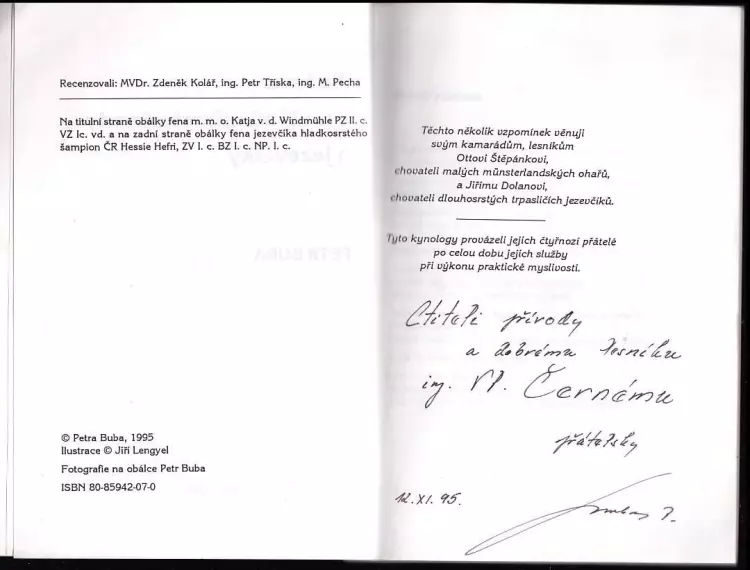 Recenzovali: MVDr. Zdeněk Kolář, ing. Petr Tříska, ing. M. Pecha
Na titulní straně obálky fena m. m. o. Katja v. d. Windmühle PZ II. c.
VZ Ic. vd. a na zadní straně obálky fena jezevčíka hladkosrstého
šampion ČR Hessie Hefri, ZV I. c. BZ I. c. NP. I. c.
© Petra Buba, 1995
Ilustrace © Jiří Lengyel
Fotografie na obálce Petr Buba
ISBN 80-85942-07-0
Těchto několik vzpomínek věnuji
svým kamarádům, lesníkům
Ottovi Štěpánkovi,
chovateli malých münsterlandských ohařů,
a Jiřímu Dolanovi,
chovateli dlouhosrstých trpasličích jezevčíků.
Tyto kynology provázeli jejich čtyřnozí přátelé
po celou dobu jejich služby
při výkonu praktické myslivosti.
Ctiteli přírody
a dobrému lesníku
ing. Vl. Černému
přátelsky
12. XI. 95.